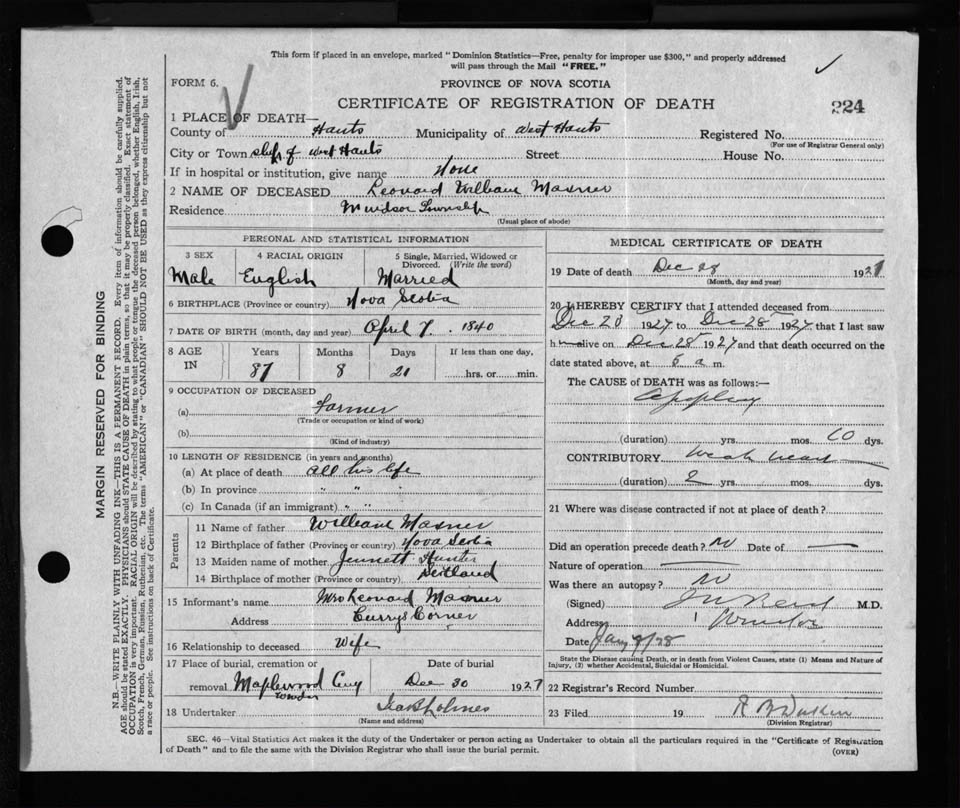 This form if placed in an envelope, marked "Dominion Statistics—Free, penalty for improper use $300," and properly addressed
will pass through the Mail "FREE."
FORM 6.
PROVINCE OF NOVA SCOTIA
CERTIFICATE OF REGISTRATION OF DEATH
224
1 PLACE OF DEATH—
County of Hants Municipality of West Hants Registered No.
(For use of Registrar General only)
City or Town of West Hants Street House No.
If in hospital or institution, give name None
2 NAME OF DECEASED Leonard William Masner
Residence Windsor Township
(Usual place of abode)
MARGIN RESERVED FOR BINDING
N.B.—WRITE PLAINLY WITH UNFADING INK—THIS IS A PERMANENT RECORD. Every item of information should be carefully supplied.
AGE should be stated EXACTLY. PHYSICIANS should STATE CAUSE OF DEATH in plain terms, so that it may be properly classified. Exact statement of
OCCUPATION is very important. RACIAL ORIGIN will be described by stating to what people or tongue the deceased person belonged, whether English, Irish,
Scotch, French, German, Russian, Ruthenian, etc. The terms "AMERICAN" or "CANADIAN" SHOULD NOT BE USED as they express citizenship but not
a race or people. See instructions on back of Certificate.
PERSONAL AND STATISTICAL INFORMATION
3 SEX 4 RACIAL ORIGIN 5 Single, Married, Widowed or
Divorced. (Write the word)
Male English Married
6 BIRTHPLACE (Province or country) Nova Scotia
7 DATE OF BIRTH (month, day and year) April 7. 1840
8 AGE IN Years Months Days If less than one day,
87 8 21 hrs. or min.
9 OCCUPATION OF DECEASED
(a) Farmer
(Trade or occupation or kind of work)
(b)
(Kind of industry)
10 LENGTH OF RESIDENCE (in years and months)
(a) At place of death all his life
(b) In province " " "
(c) In Canada (if an immigrant) " "
Parents
11 Name of father William Masner
12 Birthplace of father (Province or country) Nova Scotia
13 Maiden name of mother Jennett Hunter
14 Birthplace of mother (Province or country) Scotland
15 Informant's name Mrs Leonard Masner
Address Currys Corner
16 Relationship to deceased Wife
17 Place of burial, cremation or Date of burial
removal Maplewood Cmy Dec 30 1927
Windsor
18 Undertaker
(Name and address)
MEDICAL CERTIFICATE OF DEATH
19 Date of death Dec 28 1927
(Month, day and year)
20 I HEREBY CERTIFY that I attended deceased from
Dec 20 1927 to Dec 28 1927 that I last saw
h alive on Dec 28 1927 and that death occurred on the
date stated above, at 5 a m.
The CAUSE OF DEATH was as follows:—
Apoplexy
(duration) yrs. mos. 10 dys.
CONTRIBUTORY Weak heart
(duration) 2 yrs. mos. dys.
21 Where was disease contracted if not at place of death?
Did an operation precede death? No Date of —
Nature of operation —
Was there an autopsy? No
(Signed) M.D.
Address Windsor
Date Jany 9/28
State the Disease causing Death, or in death from Violent Causes, state (1) Means and Nature of
Injury, (2) whether Accidental, Suicidal or Homicidal.
22 Registrar's Record Number
23 Filed 19
(Division Registrar)
SEC. 46—Vital Statistics Act makes it the duty of the Undertaker or person acting as Undertaker to obtain all the particulars required in the "Certificate of Registration
of Death" and to file the same with the Division Registrar who shall issue the burial permit.
(OVER)